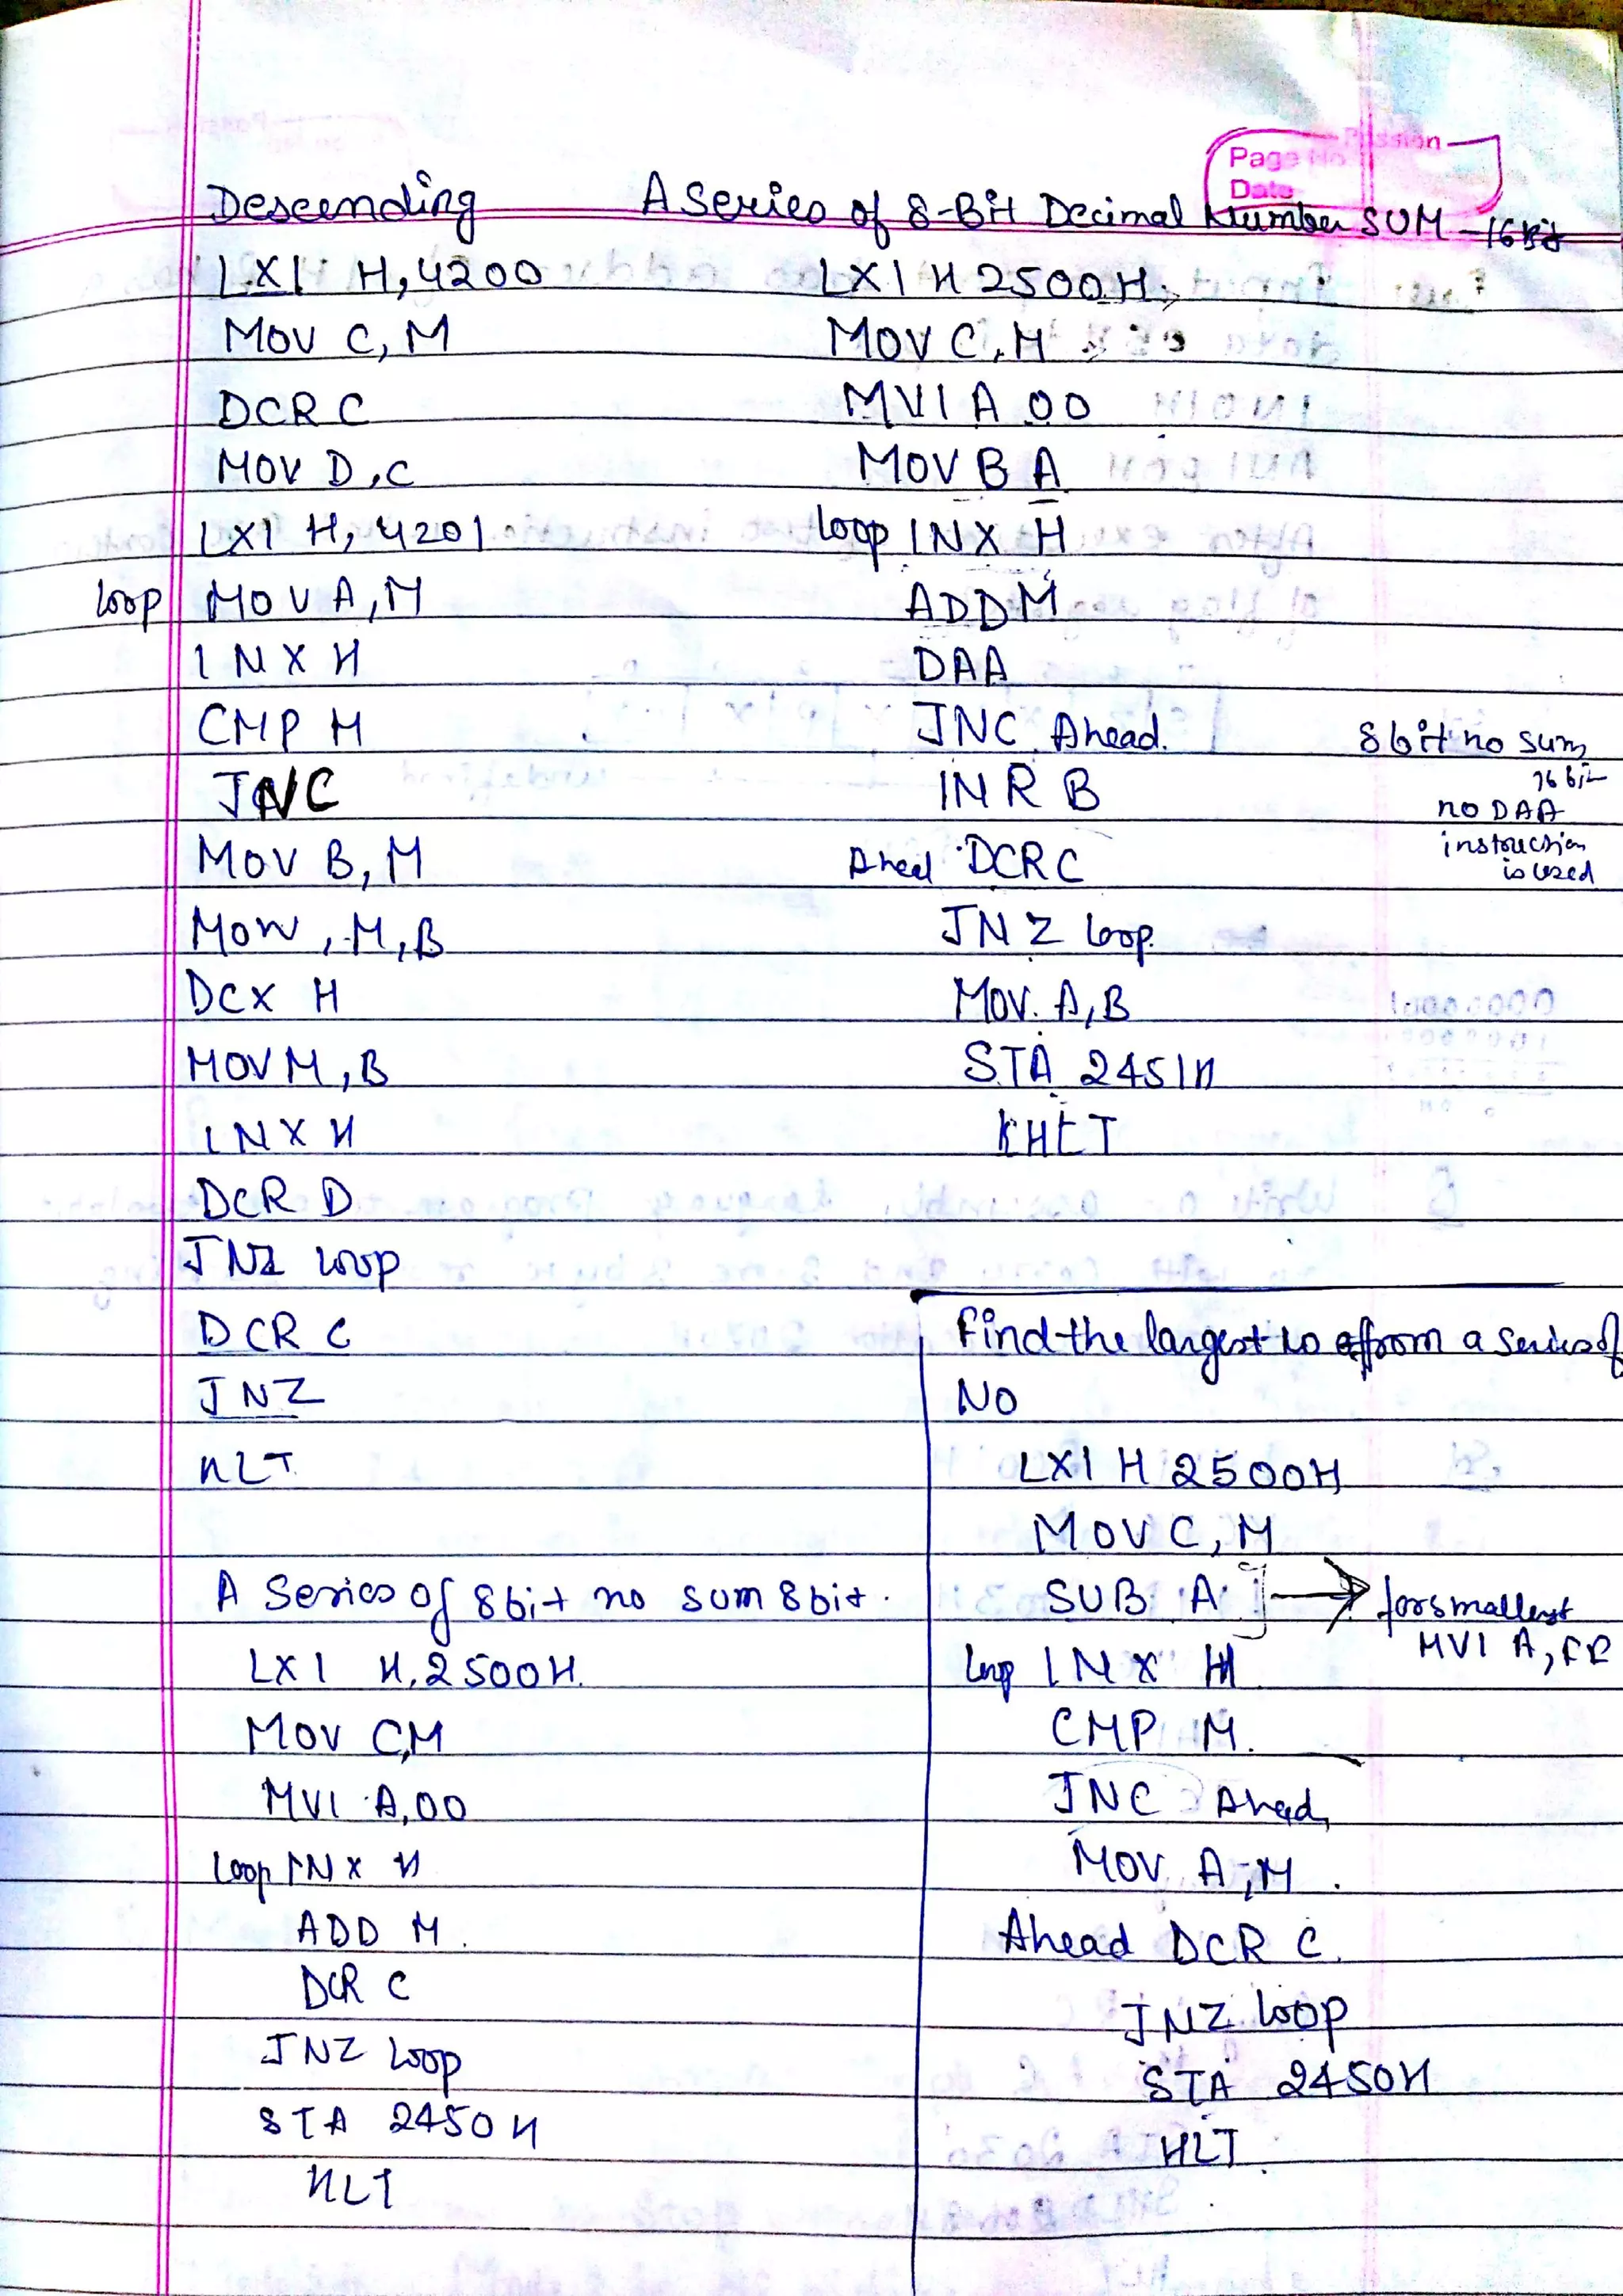 Page No
Date
Descending
LXI H, 4200
MOV C, M
DCR C
MOV D, C
LXI H, 4201
loop MOV A, M
INX H
CMP M
JNC
MOV B, M
MOV , M, B
DCX H
MOV M, B
INX H
DCR D
JNZ loop
DCR C
JNZ
HLT
A Series of 8bit no sum 8bit.
LXI H, 2500H.
MOV C,M
MVI A,00
loop INX H
ADD M.
DCR C
JNZ loop
STA 2450H
HLT
A Series of 8-Bit Decimal Number SUM - 16 Bit
LXI H 2500H
MOV C, M
MVI A 00
MOV B A
loop INX H
ADD M
DAA
JNC Ahead.
INR B
Ahed DCR C
JNZ loop.
MOV. A, B
STA 2451H
HLT
8 bit no sum
16 bit
no DAA
instruction
is used
Find the largest no from a series of
NO
LXI H 2500H
MOV C, M
SUB A → for smallest
MVI A, FF
loop INX H
CMP M.
JNC Ahead
MOV A, M.
Ahead DCR C.
JNZ loop
STA 2450H
HLT.